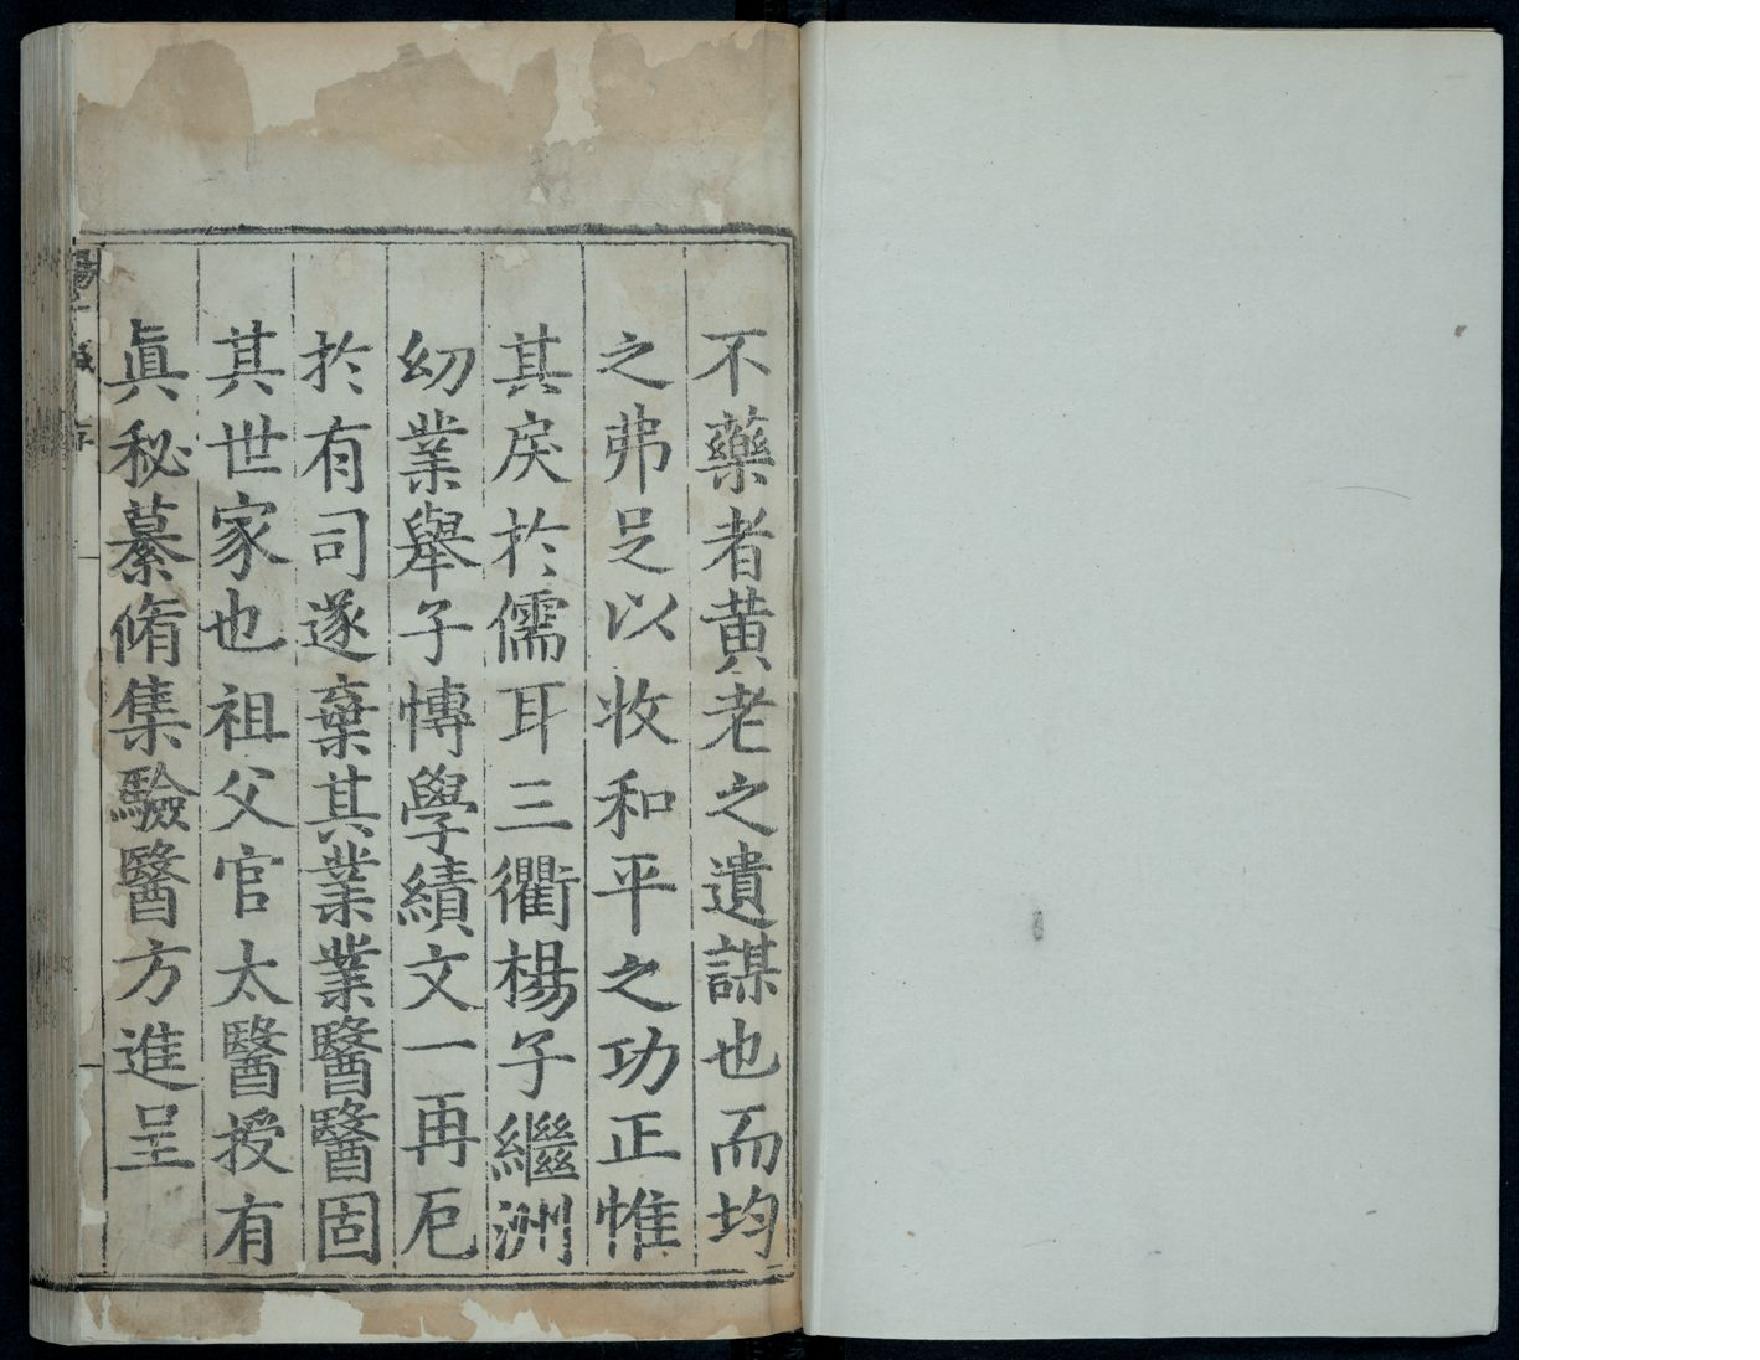 不藥者黄老之遺謀也而均
之弗足以收和平之功正惟
其戾於儒耳三衢楊子繼洲
幼業舉子博學績文一再厄
於有司遂棄其業業醫醫固
其世家也祖父官太醫授有
眞秘纂脩集驗醫方進呈